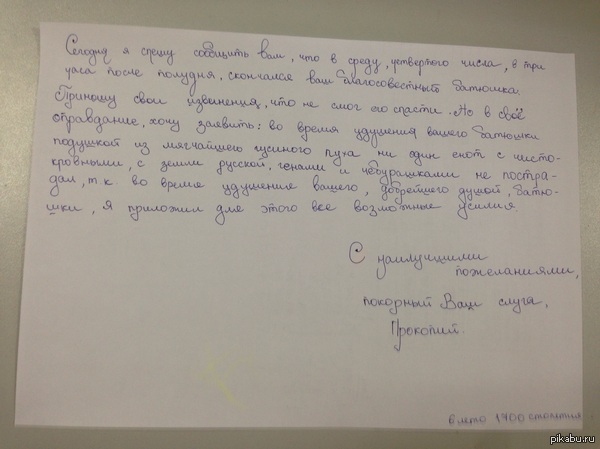 Сегодня я спешу сообщить вам, что в среду, четвертого числа, в три
часа после полудня, скончался ваш благосовестный батюшка.
Приношу свои извинения, что не смог его спасти. Но в своё
оправдание, хочу заявить: во время удушения вашего батюшки
подушкой из мягчайшего гусиного пуха ни один енот с чисто-
кровными, с земли русской, генами и чебурашками не постра-
дал, т.к во время удушения вашего, добрейшего душой, батю-
шки, я приложил для этого все возможные усилия
С наилучшими
пожеланиями,
покорный Ваш слуга,
Прокопий.
6 лето 1700 столетия
pikabu.ru